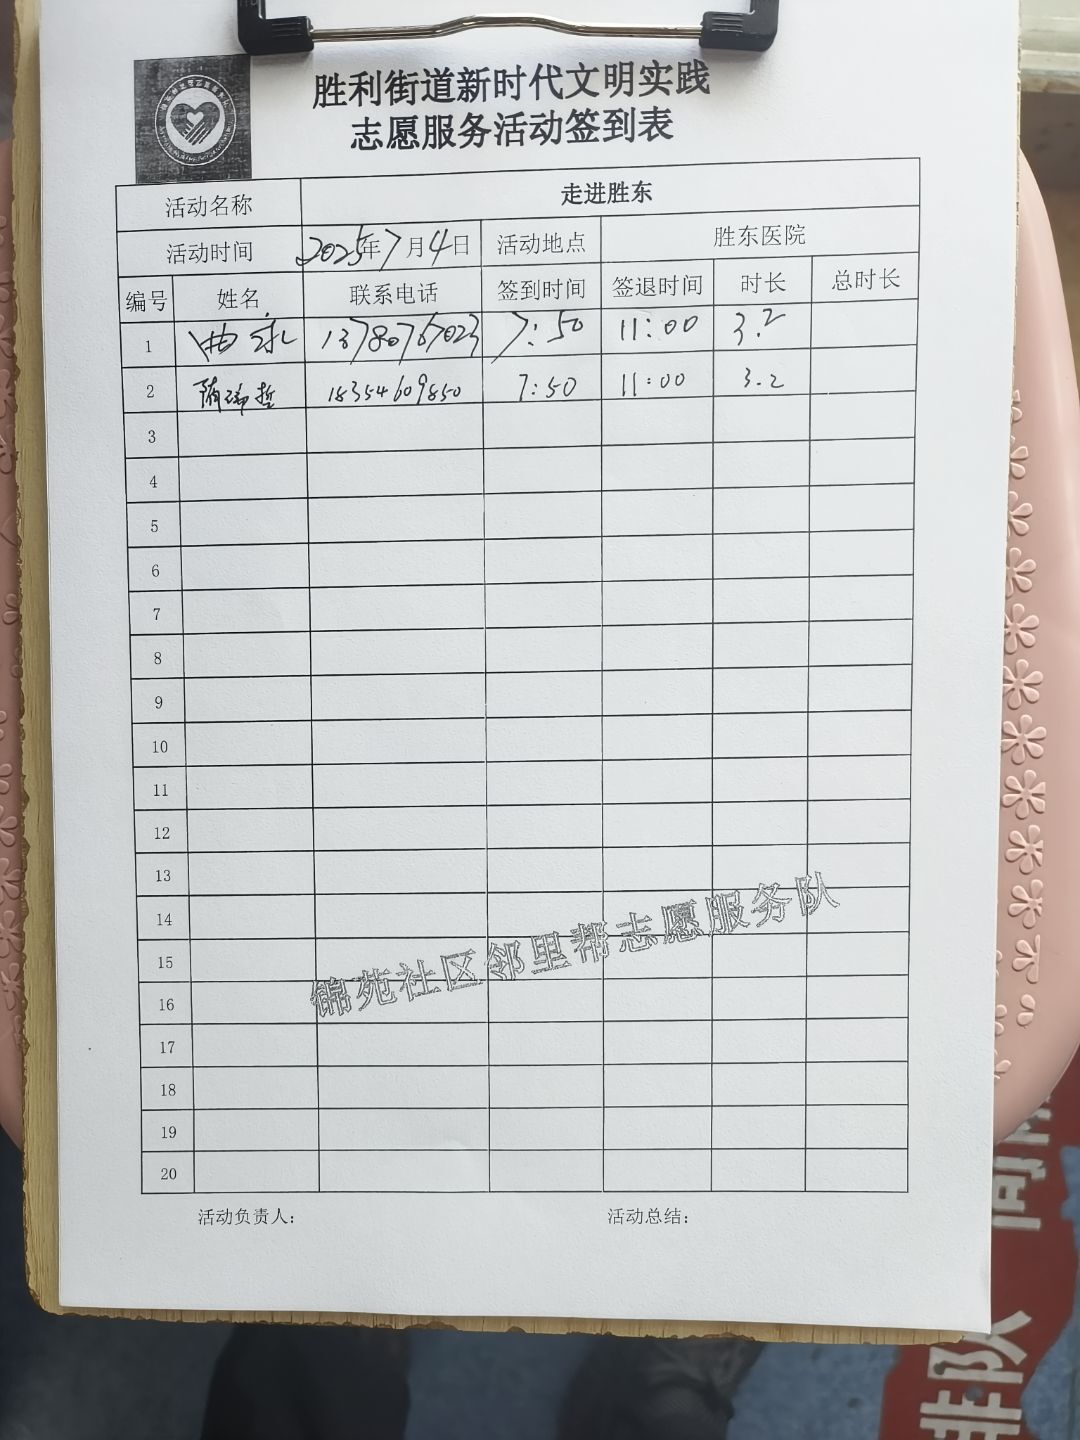 胜利街道新时代文明实践
志愿服务活动签到表
活动名称 走进胜东
活动时间 2025年7月4日 活动地点 胜东医院
编号 姓名 联系电话 签到时间 签退时间 时长 总时长
1 曲永 7:50 11:00 3.2
2 隋瑞哲 18354609850 7:50 11:00 3.2
3
4
5
6
7
8
9
10
11
12
13
14
15
16
17
18
19
20
锦苑社区邻里帮志愿服务队
活动负责人: 活动总结:
排队